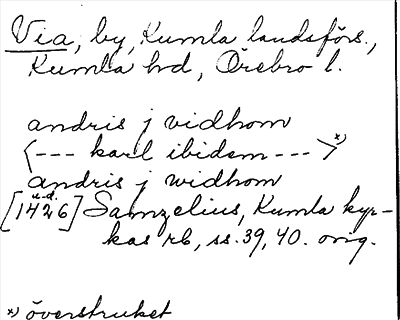 Via, by, Kumla landsförs.,
Kumla hd, Örebro l.
andris j vidhom
<--- karl ibidem --->x)
andris j widhom
u.d.
[1426] Samzelius, Kumla kyr-
kas rb, ss. 39, 40. orig.
x) överstruket